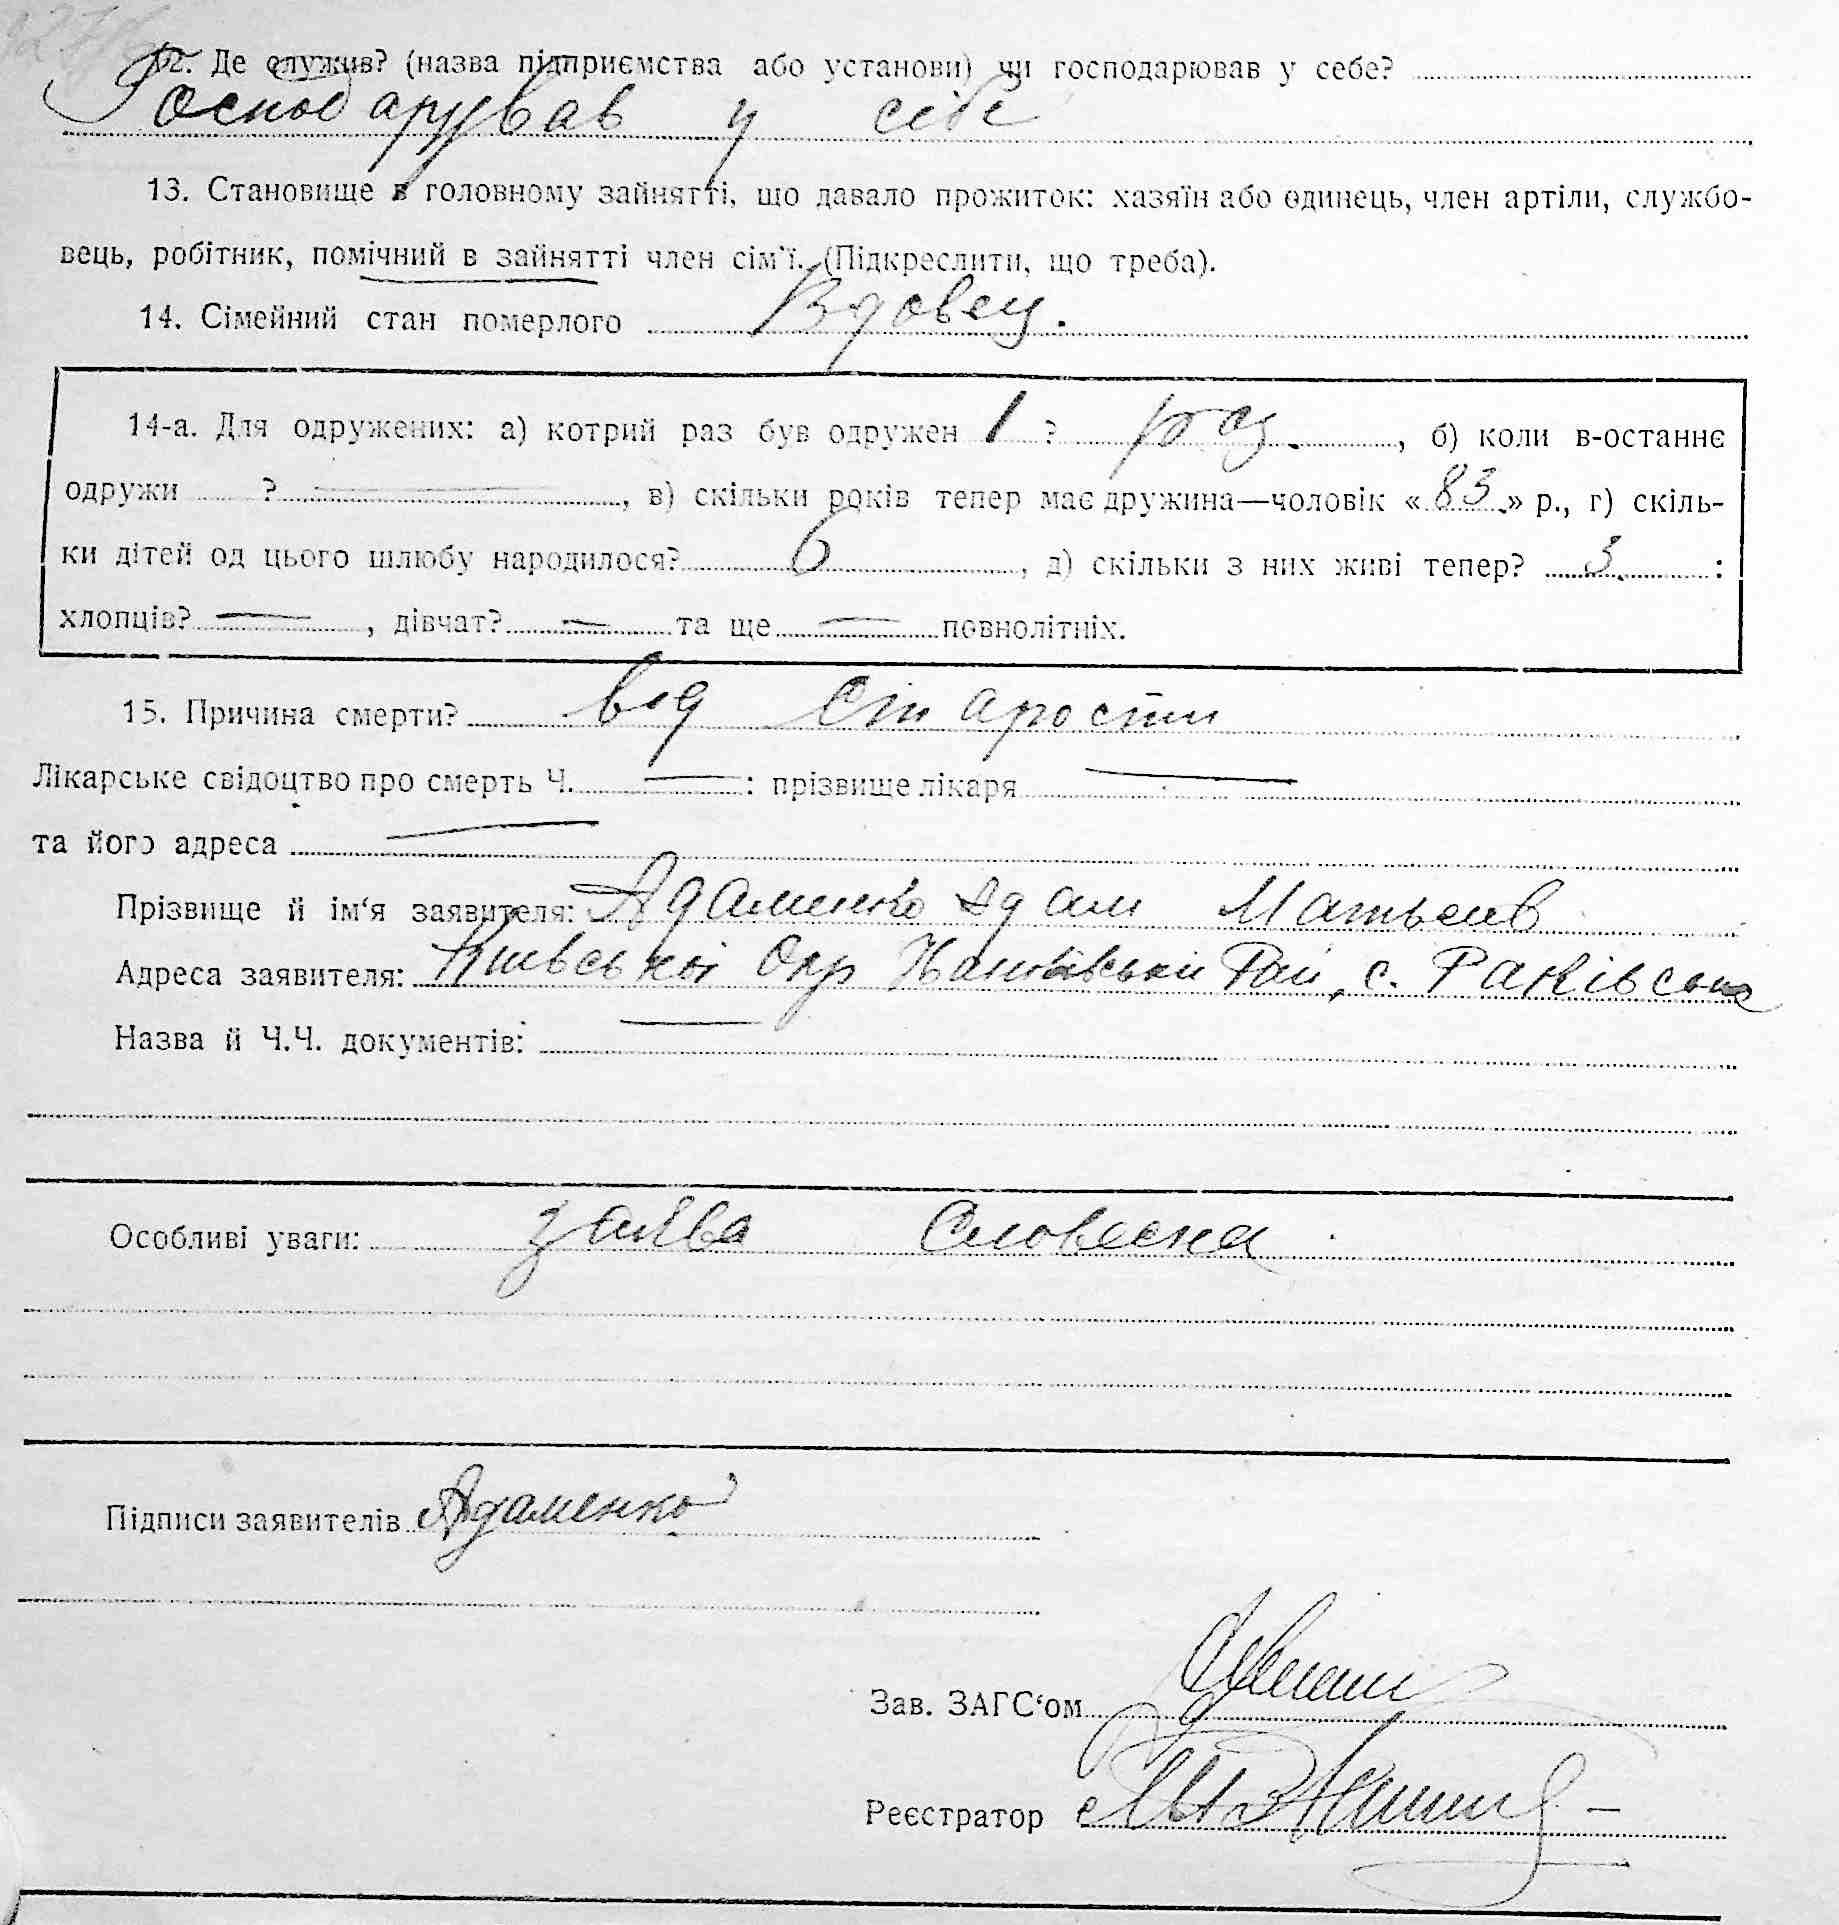 12. Де служив? (назва підприємства або установи) чи господарював у себе?
Господарував у себе
13. Становище в головному зайнятті, що давало прожиток: хазяїн або одинець, член артіли, службо-
вець, робітник, помічний в зайнятті член сім'ї. (Підкреслити, що треба).
14. Сімейний стан померлого Вдовец.
14-а. Для одружених: а) котрий раз був одружен 1 ? раз. , б) коли в-останнє
одружи ? — , в) скільки років тепер має дружина—чоловік « 83 » р., г) скіль-
ки дітей од цього шлюбу народилося? 6 , д) скільки з них живі тепер? 3. :
хлопців? — , дівчат? — та ще — повнолітніх.
15. Причина смерти? від старости
Лікарське свідоцтво про смерть Ч. — : прізвище лікаря —
та його адреса —
Прізвище й ім'я заявителя: Адаменко Адам Матвеїв
Адреса заявителя: Київської Окр Рай, с. Раківська
Назва й Ч.Ч. документів: —
Особливі уваги: заява словесна
Підписи заявителів Адаменко
Зав. ЗАГС'ом
Реєстратор